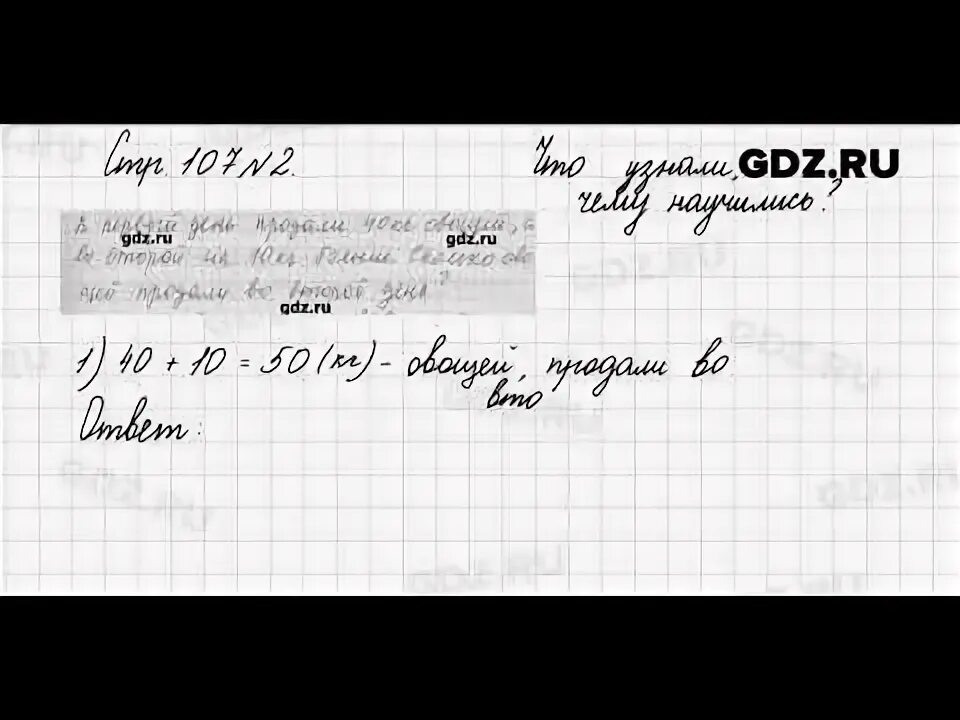 Стр. 107 №2.
Что узнали, GDZ.RU
чему научились?
В первый день продали 40 кг овощей, а
gdz.ru gdz.ru
во второй на 10 кг больше. Сколько ово
щей продали во второй день?
gdz.ru
1) 40 + 10 = 50 (кг) - овощей, продали во
вто
Ответ: